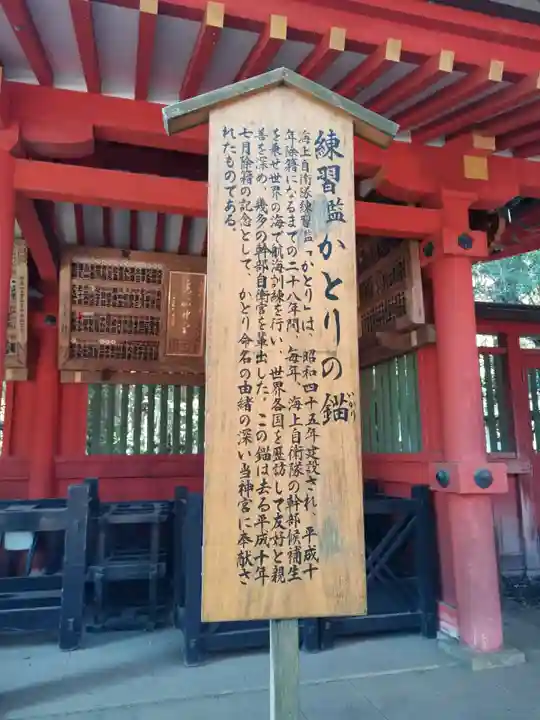 練習艦かとりの錨
いかり
海上自衛隊練習艦「かとり」は、昭和四十五年建設され、平成十
年除籍になるまでの二十八年間、毎年、海上自衛隊の幹部候補生
を乗せ世界の海で航海訓練を行い、世界各国を歴訪して友好と親
善を深め、幾多の幹部自衛官を輩出した。この錨は去る平成十年
七月除籍の記念として、かとり命名の由緒の深い当神宮に奉献さ
れたものである。